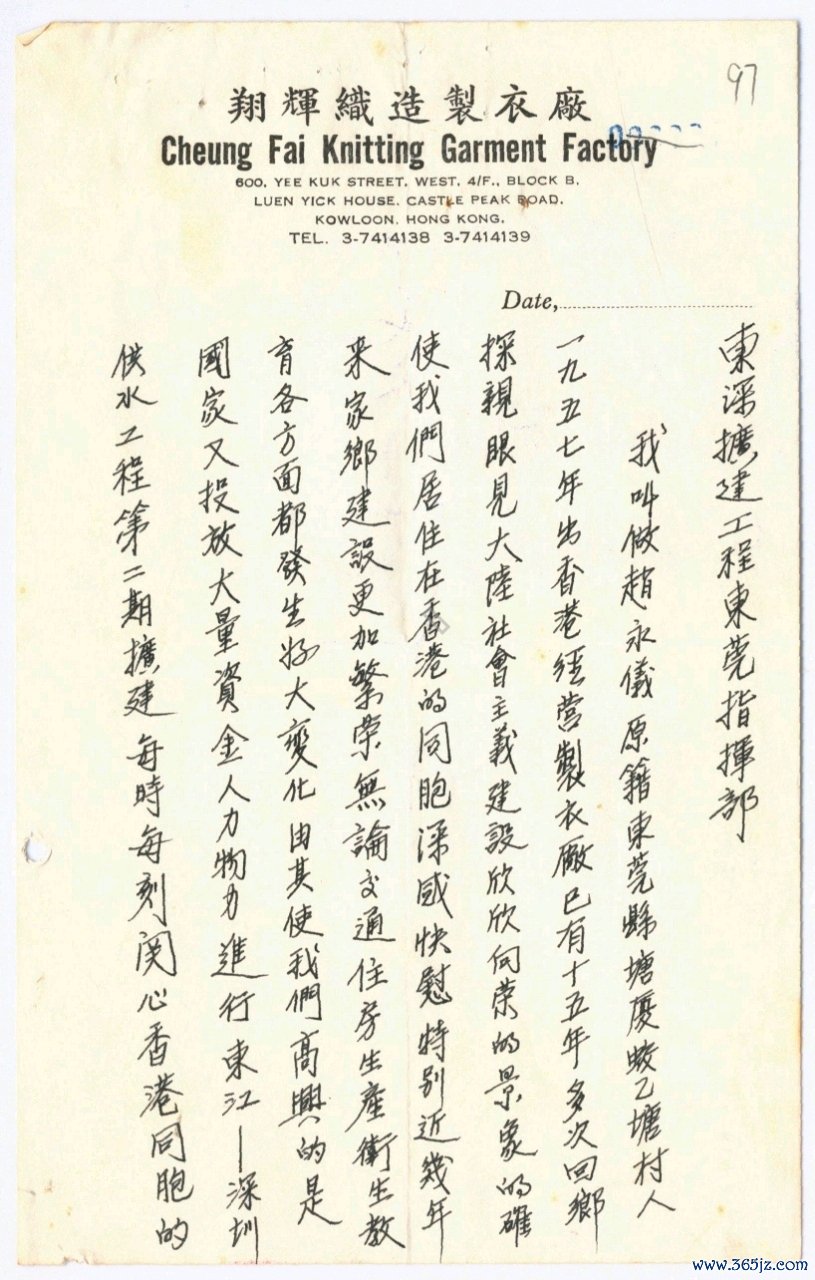 97
翔輝織造製衣廠
Cheung Fai Knitting Garment Factory
600, YEE KUK STREET, WEST, 4/F., BLOCK B,
LUEN YICK HOUSE, CASTLE PEAK ROAD,
KOWLOON, HONG KONG.
TEL. 3-7414138 3-7414139
Date,
東深擴建工程東莞指揮部
我叫做趙永儀原籍東莞縣塘厦蛟乙塘村人
一九五七年出香港經营製衣廠已有十五年多次回鄉
探親眼見大陸社會主義建設欣欣向荣的景象的確
使我們居住在香港的同胞深感快慰特别近幾年
来家鄉建設更加繁荣無論交通住房生產衛生教
育各方面都發生好大变化由其使我們高興的是
國家又投放大量資金人力物力進行東江—深圳
供水工程第二期擴建每時每刻関心香港同胞的
www.365jz.com